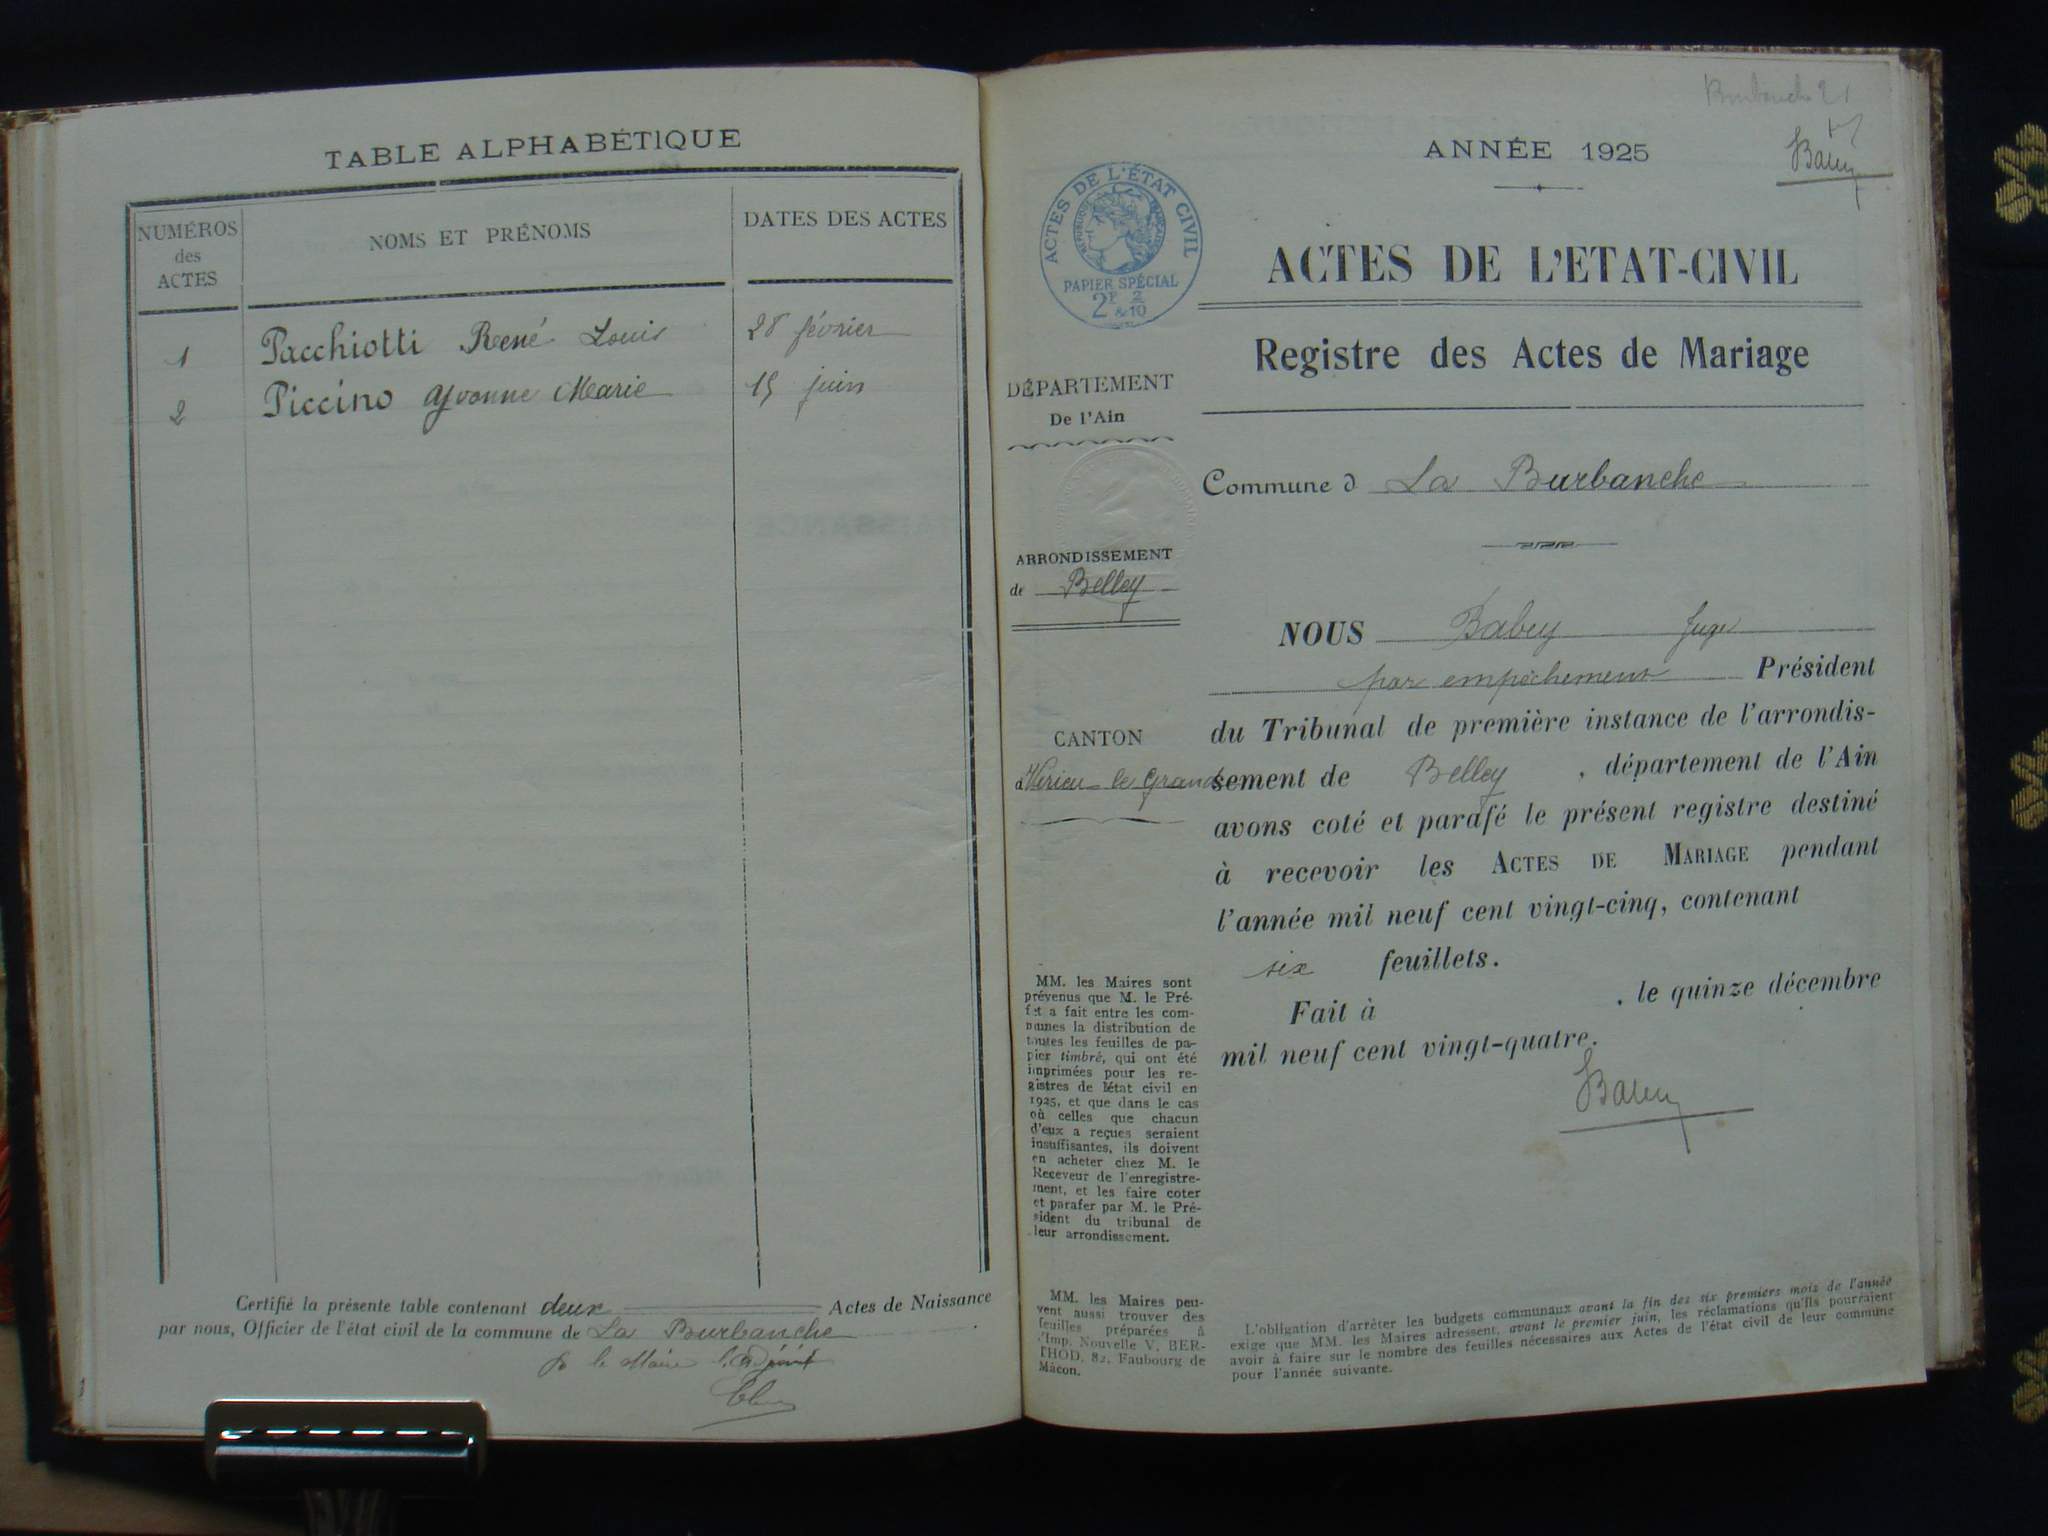 TABLE ALPHABÉTIQUE
NUMÉROS
des
ACTES
NOMS ET PRÉNOMS
DATES DES ACTES
1 Pacchiotti René Louis 28 février
2 Piccino Yvonne Marie 15 juin
Certifié la présente table contenant deux Actes de Naissance
par nous, Officier de l'état civil de la commune de La Burbanche
le Maire l'adjoint
ANNÉE 1925
ACTES DE L'ÉTAT CIVIL
RÉPUBLIQUE FRANÇAISE
PAPIER SPÉCIAL
2F & 2/10
ACTES DE L'ETAT-CIVIL
Registre des Actes de Mariage
DÉPARTEMENT
De l'Ain
Commune d La Burbanche
ARRONDISSEMENT
de Belley
CANTON
d'Virieu-le-Grand
NOUS Babey Juge
par empêchement Président
du Tribunal de première instance de l'arrondis-
sement de Belley, département de l'Ain
avons coté et parafé le présent registre destiné
à recevoir les ACTES DE MARIAGE pendant
l'année mil neuf cent vingt-cinq, contenant
six feuillets.
Fait à , le quinze décembre
mil neuf cent vingt-quatre.
Babey
MM. les Maires sont
prévenus que M. le Pré-
fet a fait entre les com-
munes la distribution de
toutes les feuilles de pa-
pier timbré, qui ont été
imprimées pour les re-
gistres de l'état civil en
1925, et que dans le cas
où celles que chacun
d'eux a reçues seraient
insuffisantes, ils doivent
en acheter chez M. le
Receveur de l'enregistre-
ment, et les faire coter
et parafer par M. le Pré-
sident du tribunal de
leur arrondissement.
MM. les Maires peu-
vent aussi trouver des
feuilles préparées à
l'Imp. Nouvelle V. BER-
THOD, 82, Faubourg de
Mâcon.
L'obligation d'arrêter les budgets communaux avant la fin des six premiers mois de l'année
exige que MM. les Maires adressent, avant le premier juin, les réclamations qu'ils pourraient
avoir à faire sur le nombre des feuilles nécessaires aux Actes de l'état civil de leur commune
pour l'année suivante.